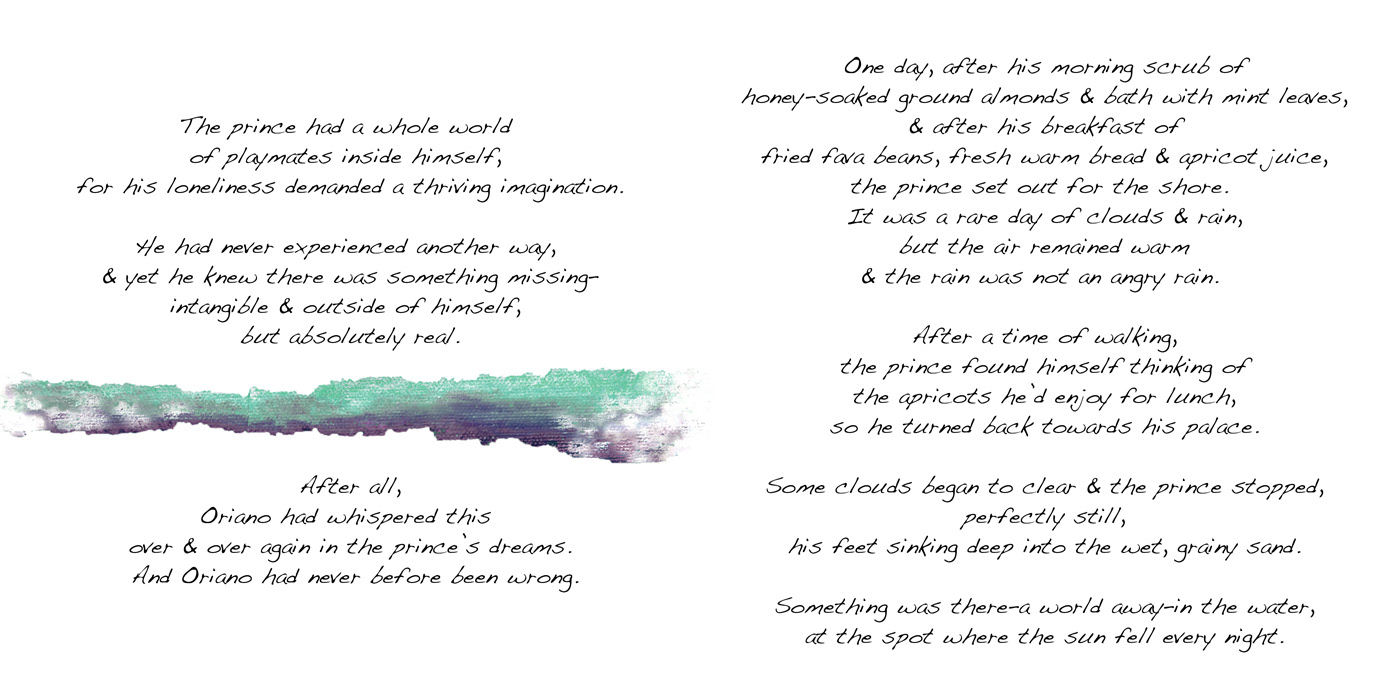 The prince had a whole world
of playmates inside himself,
for his loneliness demanded a thriving imagination.
He had never experienced another way,
& yet he knew there was something missing-
intangible & outside of himself,
but absolutely real.
After all,
Oriano had whispered this
over & over again in the prince`s dreams.
And Oriano had never before been wrong.
One day, after his morning scrub of
honey-soaked ground almonds & bath with mint leaves,
& after his breakfast of
fried fava beans, fresh warm bread & apricot juice,
the prince set out for the shore.
It was a rare day of clouds & rain,
but the air remained warm
& the rain was not an angry rain.
After a time of walking,
the prince found himself thinking of
the apricots he`d enjoy for lunch,
so he turned back towards his palace.
Some clouds began to clear & the prince stopped,
perfectly still,
his feet sinking deep into the wet, grainy sand.
Something was there-a world away-in the water,
at the spot where the sun fell every night.